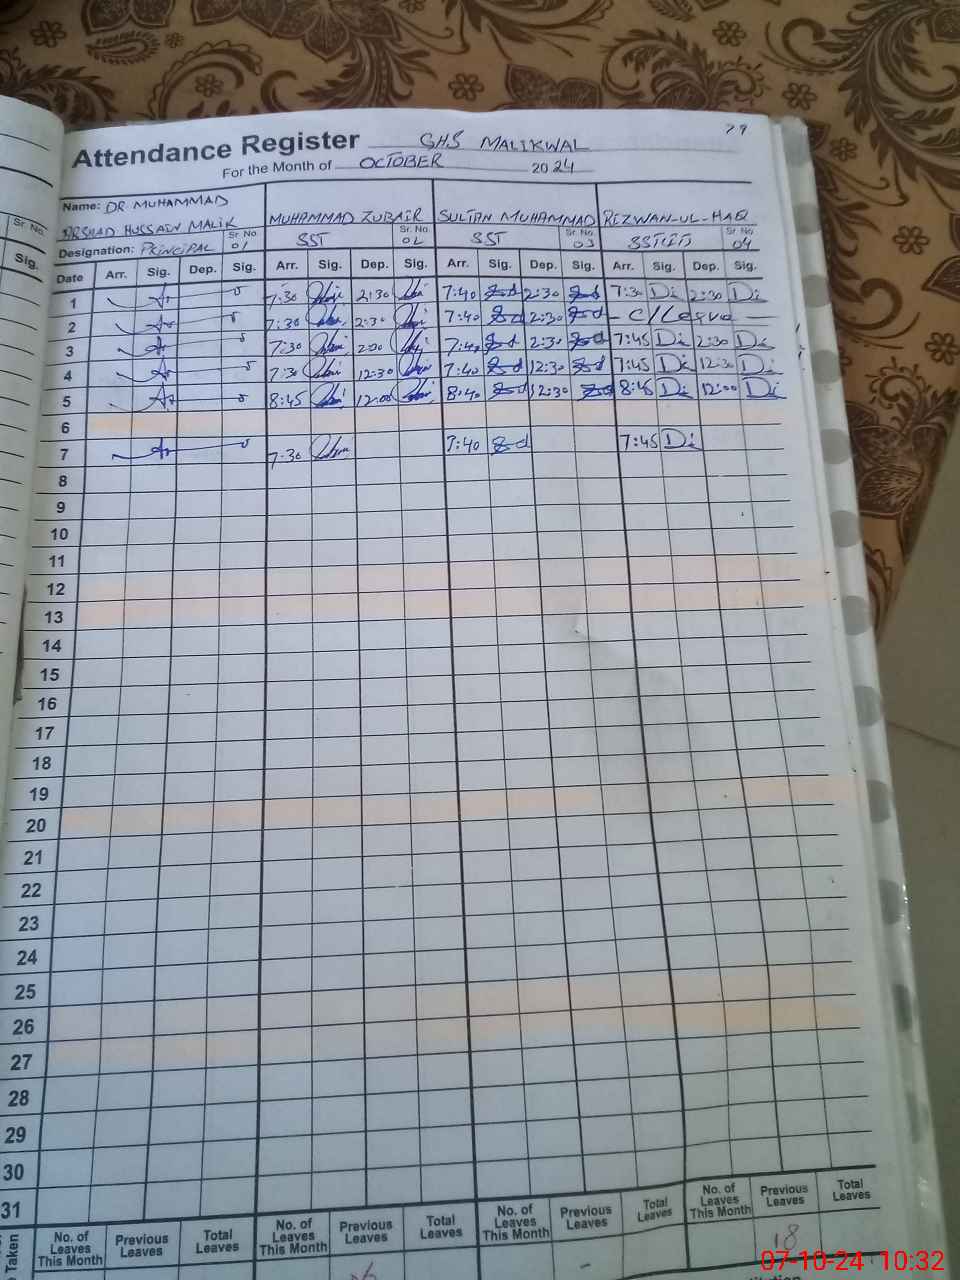 79
Attendance Register GHS MALIKWAL
For the Month of OCTOBER 2024
Name: DR MUHAMMAD
ARSHAD HUSSAIN MALIK MUHAMMAD ZUBAIR SULTAN MUHAMMAD RIZWAN-UL-HAQ
Designation: PRINCIPAL Sr No. 01 SST Sr No. 02 SST Sr No. 03 SSTIT Sr No. 04
Date Arr. Sig. Dep. Sig. Arr. Sig. Dep. Sig. Arr. Sig. Dep. Sig. Arr. Sig. Dep. Sig.
1 7:30 2:30 7:40 2:30 7:30 2:30
2 7:30 2:30 7:40 2:30 - C/Leave -
3 7:30 2:00 7:40 2:30 7:45 2:30
4 7:30 12:30 7:40 12:30 7:45 12:30
5 8:45 12:00 8:40 12:30 8:45 12:00
6
7 7:30 7:40 7:45
8
9
10
11
12
13
14
15
16
17
18
19
20
21
22
23
24
25
26
27
28
29
30
31
Taken No. of Leaves This Month Previous Leaves Total Leaves No. of Leaves This Month Previous Leaves Total Leaves No. of Leaves This Month Previous Leaves Total Leaves No. of Leaves This Month Previous Leaves Total Leaves
18
07-10-24 10:32
Sr No.
Sig.